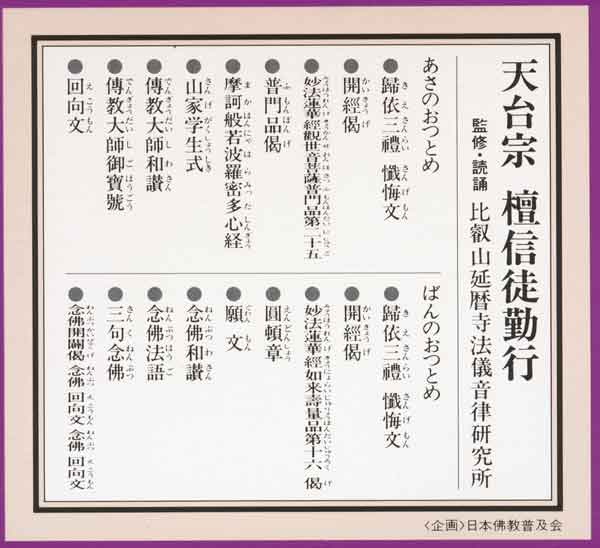 天台宗 檀信徒勤行
監修・読誦 比叡山延暦寺法儀音律研究所
あさのおつとめ
●歸依三禮 懺悔文
●開經偈
●妙法蓮華經觀世音菩薩普門品第二十五
●普門品偈
●摩訶般若波羅密多心経
●山家学生式
●傳教大師和讃
●傳教大師御寶號
●回向文
ばんのおつとめ
●歸依三禮 懺悔文
●開經偈
●妙法蓮華經如来壽量品第十六偈
●圓頓章
●願文
●念佛和讃
●念佛法語
●三句念佛
●念佛開闢偈 念佛 回向文 念佛 回向文
〈企画〉日本佛教普及会